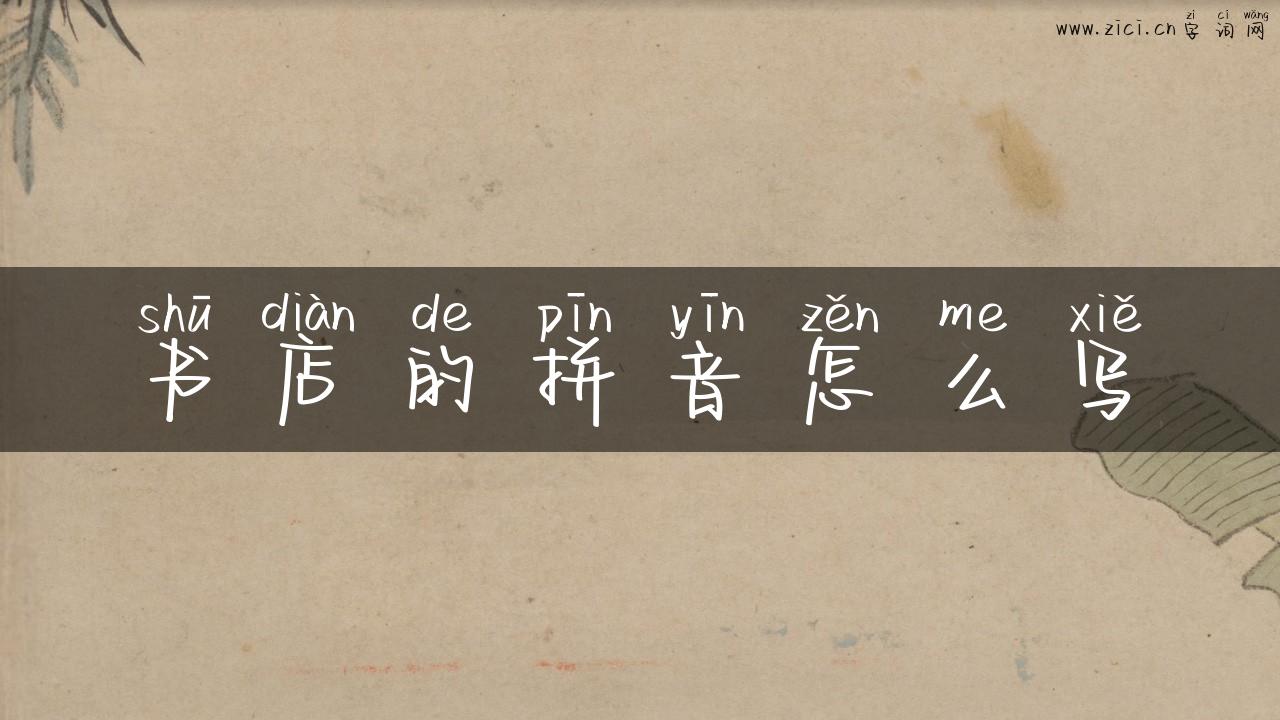 zì cí wǎng
www.zici.cn 字词网
shū diàn de pīn yīn zěn me xiě
书店的拼音怎么写